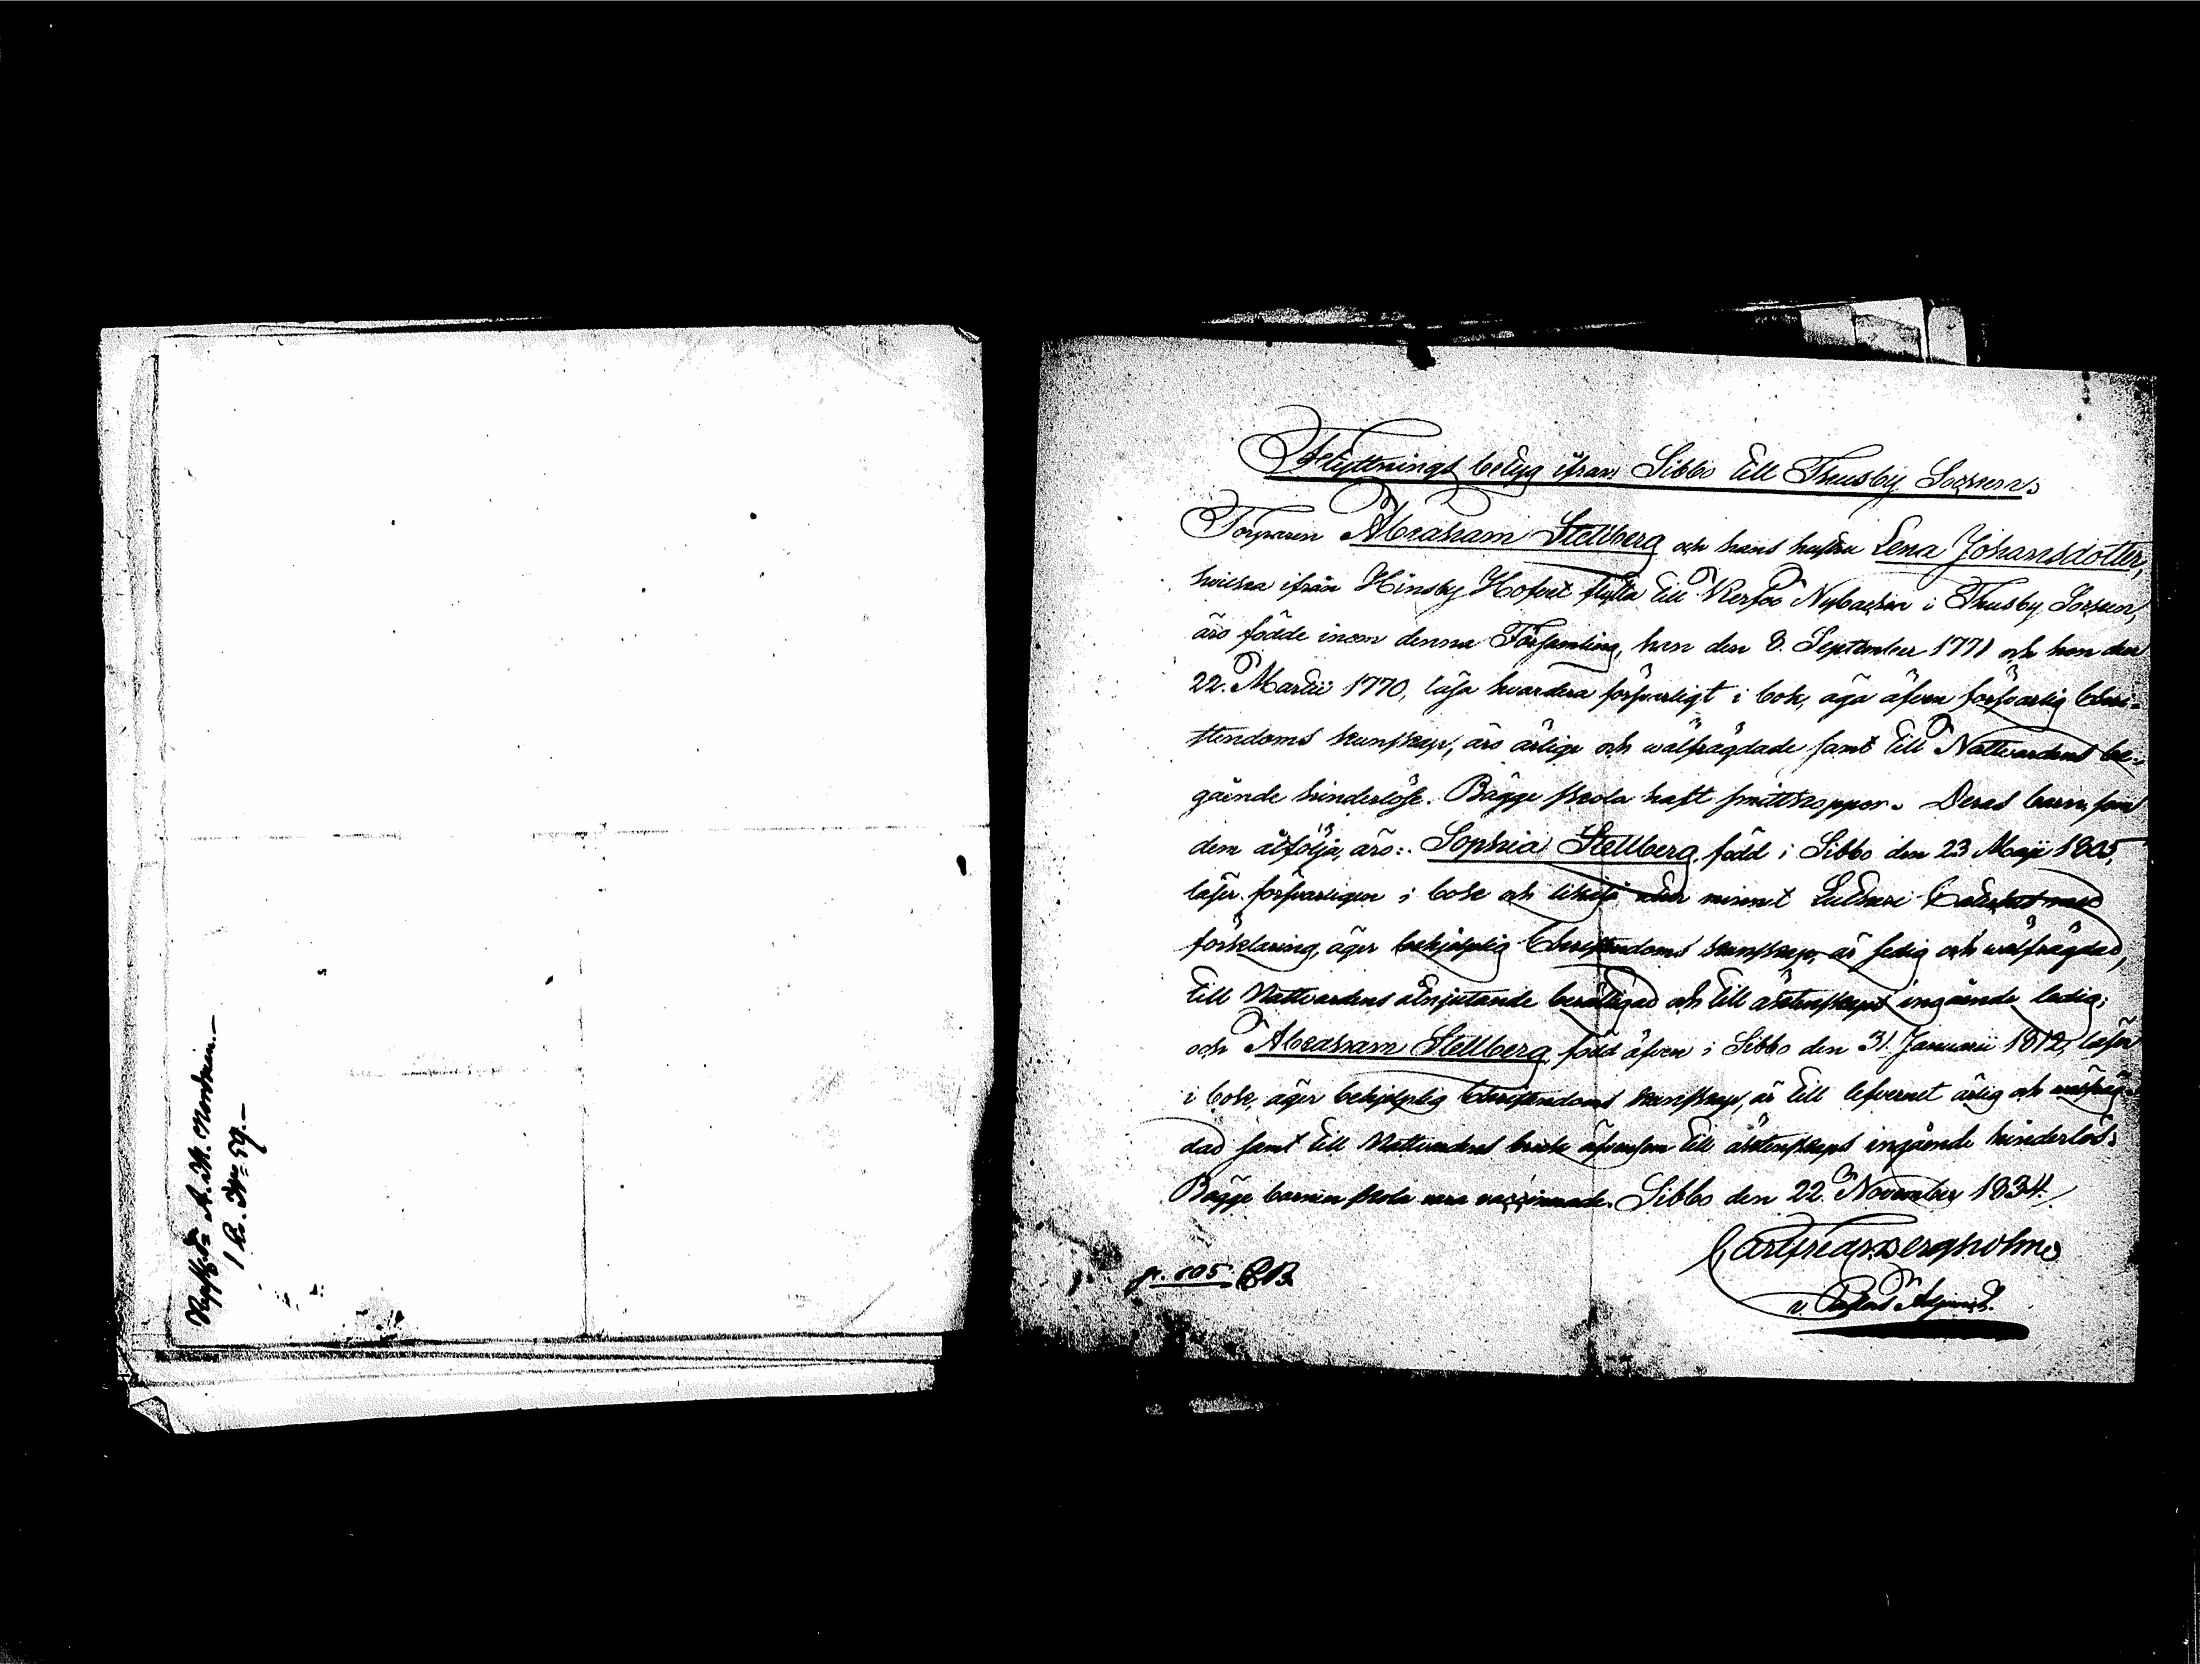 A. W. Nordström.—
1 kr. No 59.—
Flyttnings betyg ifrån Sibbo till Thusby Socken.
Torparen Abraham Stellberg och hans hustru Lena Johansdotter,
hvilka ifrån Hinsby Hofvet flytta till Kerfvo Nybacka i Thusby Socken,
äro födde inom denna Församling, han den 8. September 1771 och hon den
22. Martii 1770, läsa hvardera försvarligt i bok, äga äfven försvarlig Chri-
stendoms kunskap, äro ärlige och wälfrägdade samt till Nattvardens be-
gående hinderlöse. Bägge skola haft smittkoppor. Deras barn, som
dem åtfölja, äro: Sophia Stellberg, född i Sibbo den 23 Maji 1805,
läser försvarligen i bok och likaså utur minnet Lutheri Cateches med
förklaring, äger behjelplig Christendoms kunskap, är sedig och wälfrägdad,
till Nattvardens åtnjutande berättigad och till äktenskaps ingående ledig;
och Abraham Stellberg, född äfven i Sibbo den 31 Januarii 1812, läser
i bok, äger behjelplig Christendoms kunskap, är till lefvernet ärlig och wälfräg-
dad samt till Nattvardens bruk äfvensom till äktenskaps ingående hinderlös.
Bägge barnen skola vara vaccinerade. Sibbo den 22 November 1834.
Carl Fredr. Bergholm
v. Pastors Adjunct.
p. 105. CB